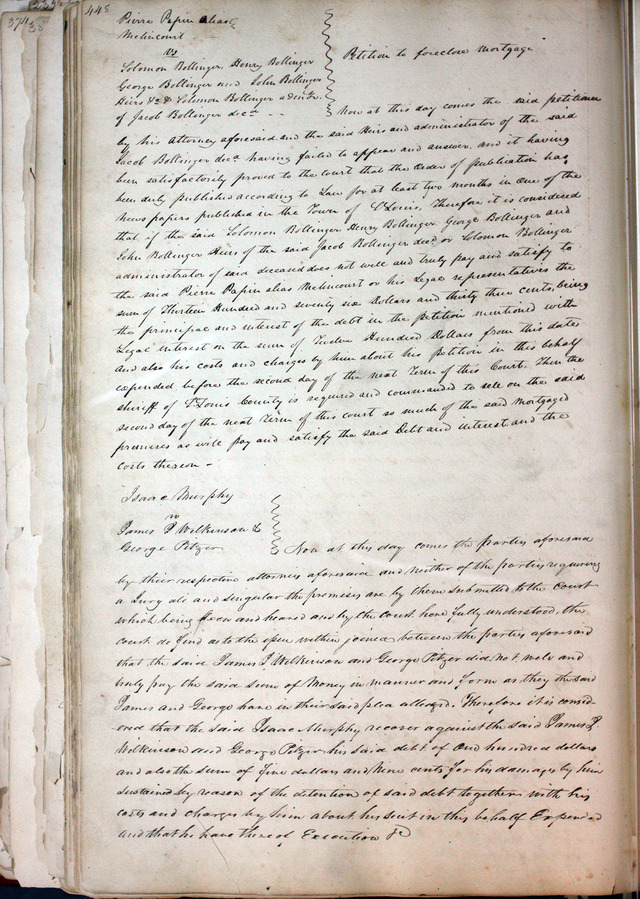 448
Pierre Papin alias
Melincourt
vs
Solomon Bollinger, Henry Bollinger
George Bollinger and John Bollinger
Heirs &c & Solomon Bollinger admr.
of Jacob Bollinger decd
Petition to foreclose Mortgage
Now at this day comes the said petitioner
by his Attorney aforesaid and the said Heirs and administrator of the said
Jacob Bollinger decd having failed to appear and answer, and it having
been satisfactorily proved to the court that the order of publication has
been duly published according to Law for at least two months in one of the
News papers published in the Town of St Louis, Therefore it is considered
that if the said Solomon Bollinger Henry Bollinger George Bollinger and
John Bollinger Heirs of the said Jacob Bollinger decd or Solomon Bollinger
administrator of said deceased does not well and truly pay and satisfy to
the said Pierre Papin alias Melincourt or his Legal representatives the
sum of Thirteen Hundred and seventy six Dollars and thirty three cents, being
the principal and interest of the debt in the Petition mentioned with
Legal interest on the sum of Twelve Hundred Dollars from this date
and also his costs and charges by him about his Petition in this behalf
expended before the second day of the next Term of this Court. Then the
sheriff of St Louis County is required and commanded to sell on the said
second day of the next Term of this court so much of the said Mortgaged
premises as will pay and satisfy the said Debt and interest and the
costs thereon -
Isaac Murphy
vs
James P Wilkinson &
George Pitzer
Now at this day comes the parties aforesaid
by their respective attorneys aforesaid and neither of the parties requiring
a Jury all and singular the premises are by them submitted to the Court
which being seen and heard and by the court here fully understood. the
court do find as to the issue within joined between the parties aforesaid
that the said James P Wilkinson and George Pitzer did not well and
truly pay the said sum of Money in manner and form as they the said
James and George have in their said plea alledged. Therefore it is consid-
ered that the said Isaac Murphy recover against the said James P
Wilkinson and George Pitzer his said debt of One hundred dollars
and also the sum of five dollars and Nine cents for his damages by him
sustained by reason of the detention of said debt together with his
costs and charges by him about his suit in this behalf Expended
and that he have thereof Execution &c